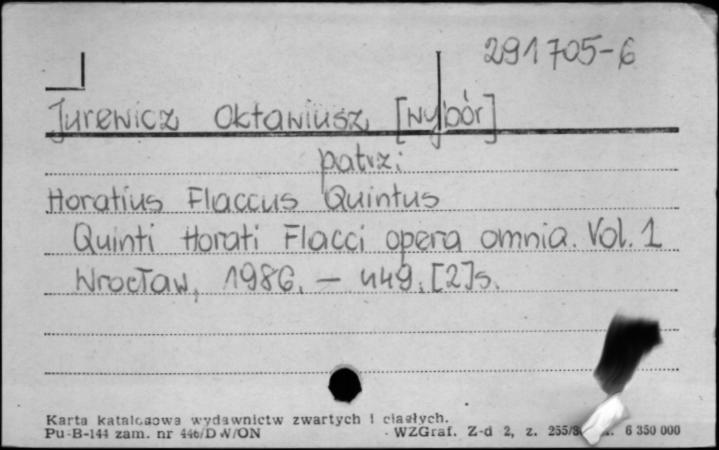 291705-6
Jurewicz Oktawiusz [wybór]
patrz:
Horatius Flaccus Quintus
Quinti Horati Flacci opera omnia. Vol. 1
Wrocław, 1986. — 449, [2] s.
Karta katalogowa wydawnictw zwartych i ciągłych.
Pu-B-144 zam. nr 446/DW/ON
WZGraf. Z-d 2, z. 255/8 6 350 000